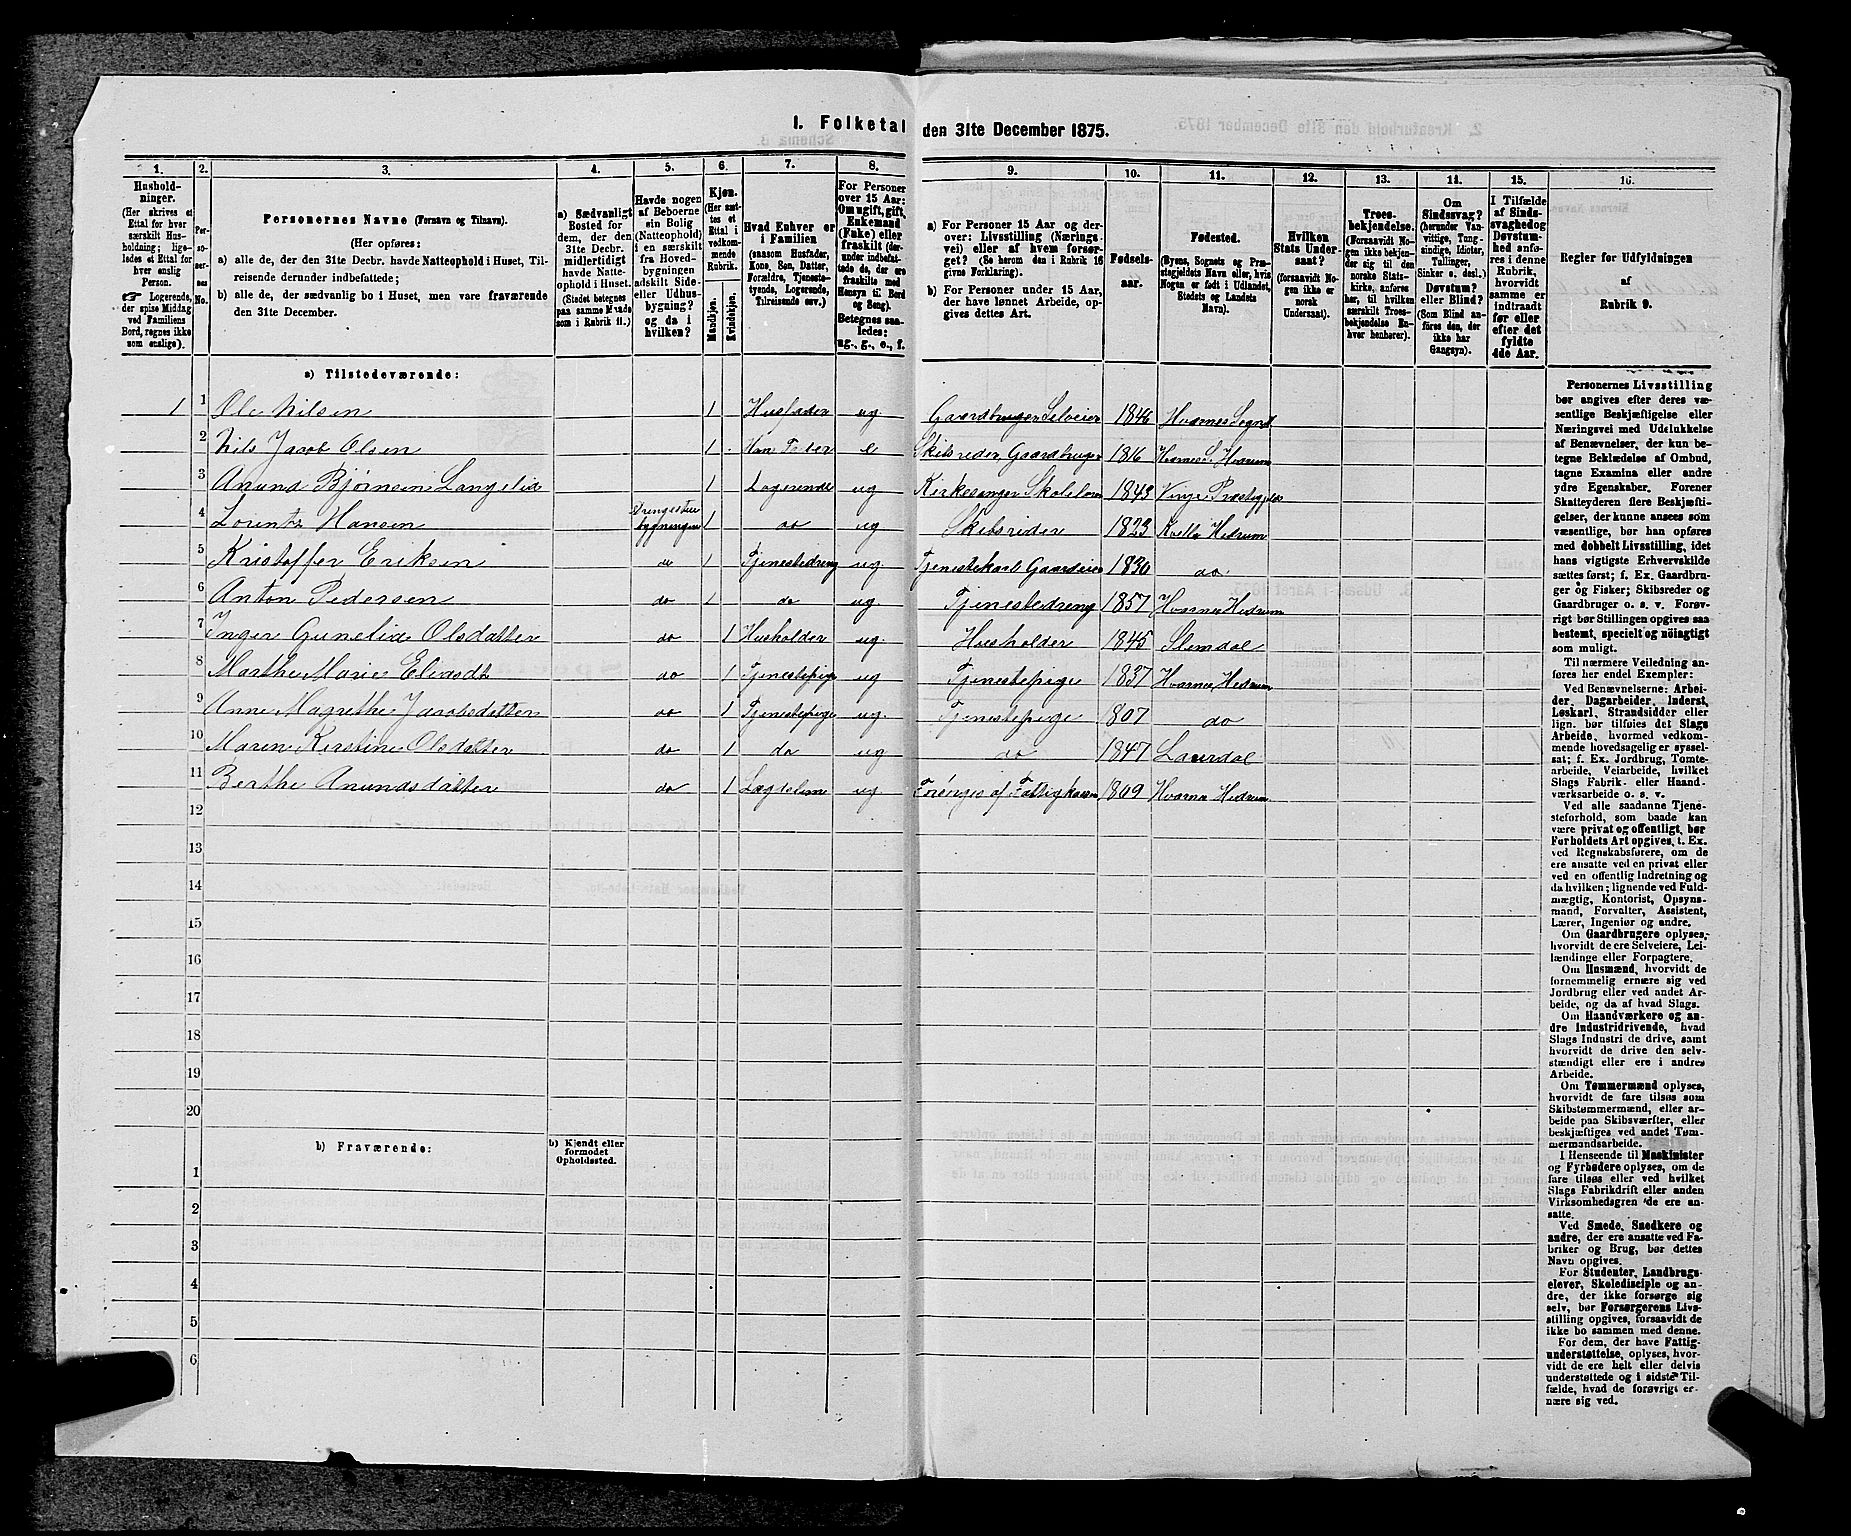 I. Folketal den 31te December 1875.
1. 2. 3. 4. 5. 6. 7. 8. 9. 10. 11. 12. 13. 14. 15. 16.
Hushold-
ninger.
(Her skrives et
Ettal for hver
særskilt Hus-
holdning; lige-
ledes et Ettal for
hver enslig
Person.
☞ Logerende,
der spise Middag
ved Familiens
Bord, regnes ikke
som enslige).
Per-
so-
ner-
nes
No.
Personernes Navne (Fornavn og Tilnavn).
(Her opføres:
a) alle de, der den 31te Decbr. havde Natteophold i Huset, Til-
reisende derunder indbefattede;
b) alle de, der sædvanlig bo i Huset, men vare fraværende
den 31te December.
a) Sædvanligt
Bosted for
dem, der den
31te Decbr.
midlertidigt
havde Natte-
ophold i Huset.
(Stedet betegnes
paa samme Maade
som i Rubrik 11.)
Havde nogen
af Beboerne
sin Bolig
(Natteophold)
i en særskilt
fra Hoved-
bygningen
adskilt Side-
eller Udhus-
bygning?
og da i
hvilken?
Kjøn.
(Her sæt-
tes et
Ettal i
vedkom-
mende
Rubrik.
Mandkjøn.
Kvindekjøn.
Hvad Enhver er
i Familien
(saasom Husfader,
Kone, Søn, Datter,
Forældre, Tjeneste-
tyende, Logerende,
Tilreisende osv.)
For Personer
over 15 Aar:
Om ugift, gift,
Enkemand
(Enke) eller
fraskilt (der-
under indbefat-
tede de, der ere
fraskilte med
Hensyn til Bord
og Seng).
Betegnes saa-
ledes:
ug., g., e., f.
a) For Personer 15 Aar og der-
over: Livsstilling (Nærings-
vei) eller af hvem forsør-
get? (Se herom den i Rubrik 16
givne Forklaring).
b) For Personer under 15 Aar,
der have lønnet Arbeide, op-
gives dettes Art.
Fødsels-
aar.
Fødested.
(Byens, Sognets og Præ-
stegjeldets Navn eller, hvis
Nogen er født i Udlandet,
Stedets og Landets
Navn).
Hvilken
Stats Under-
saat?
(forsaavidt No-
gen ikke er
norsk
Undersaat).
Troes-
bekjendelse.
(Forsaavidt No-
gen ikke bekjen-
der sig til den
norske Stats-
kirke, anføres
her, til hvilken
særskilt Troes-
bekjendelse En-
hver henhører).
Om
Sindssvag?
(herunder Van-
vittige, Tung-
sindige, Idioter,
Tullinger,
Sinker o. desl.)
Døvstum?
eller Blind?
(Som Blind an-
føres den, der
ikke har
Gangsyn).
I Tilfælde
af Sinds-
svaghed og
Døvstum-
hed anfø-
res i denne
Rubrik,
hvorvidt
samme er
indtraadt
før eller
efter det
fyldte
4de Aar.
Regler for Udfyldningen
af
Rubrik 9.
a) Tilstedeværende:
1 1 Ole Nilsen 1 Husfader ug Gaardbruger Selveier 1846 Hvarnes Sogn
2 Nils Jacob Olsen 1 Hans Fader e Skibsreder Gaardbruger 1816 Hvarnes S. Hedrum
3 Anund Bjørnsen Langelid 1 Logerende ug Kirkesanger Skolelærer 1843 Vinje Præstegjeld
4 Lorentz Hansen Drengestue bygningen 1 do ug Skibsreder 1823 Hedrum
5 Kristoffer Eriksen do 1 Tjenestedreng ug Tjenestekarl Gaardeier 1830 do
6 Anton Pedersen do 1 do ug Tjenestedreng 1857 Hvarnes Hedrum
7 Inger Gunelia Olsdatter do 1 Husholder ug Husholder 1845 Slemdal
8 Marthe Marie Eliasdt do 1 Tjenestepige ug Tjenestepige 1837 Hvarnes Hedrum
9 Anne Magrethe Jacobsdatter do 1 Tjenestepige ug Tjenestepige 1807 do
10 Maren Kirstine Olsdatter do 1 do ug do 1847 Laurdal
11 Berthe Anundsdatter do 1 Lægdslem ug Forsørges af Fattigkassen 1809 Hvarnes Hedrum
12
13
14
15
16
17
18
19
20
b) Fraværende:
b) Kjendt eller
formodet
Opholdssted.
1
2
3
4
5
6
Personernes Livsstilling
bør angives efter deres væ-
sentlige Beskjæftigelse eller
Næringsvei med Udelukkelse
af Benævnelser, der kun be-
tegne Beklædelse af Ombud,
tagne Examina eller andre
ydre Egenskaber. Forener
Skatteyderen flere Beskjæfti-
gelser, der kunne ansees som
væsentlige, bør han opføres
med dobbelt Livsstilling, idet
hans vigtigste Erhvervskilde
sættes først; f. Ex. Gaardbru-
ger og Fisker; Skibsreder og
Gaardbruger o. s. v. Forøv-
rigt bør Stillingen opgives saa
bestemt, specielt og nöiagtigt
som muligt.
Til nærmere Veiledning an-
føres her endel Exempler:
Ved Benævnelserne: Arbei-
der, Dagarbeider, Inderst,
Løskarl, Strandsidder eller
lign. bør tilføies det Slags
Arbeide, hvormed vedkom-
mende hovedsagelig er syssel-
sat; f. Ex. Jordbrug, Tomte-
arbeide, Veiarbeide, hvilket
Slags Fabrik- eller Haand-
værksarbeide o. s. v.
Ved alle saadanne Tjene-
steforhold, som baade kan
være privat og offentligt, bør
Forholdets Art opgives, t. Ex.
ved Regnskabsførere, om de
ere ansatte ved en privat eller
ved en offentlig Indretning og
da hvilken; lignende ved Fuld-
mægtig, Kontorist, Opsyns-
mand, Forvalter, Assistent,
Lærer, Ingeniør og andre.
Om Gaardbrugere oplyses,
hvorvidt de ere Selveiere, Lei-
lændinge eller Forpagtere.
Om Husmænd, hvorvidt de
fornemmelig ernære sig ved
Jordbrug eller ved andet Ar-
beide, og da af hvad Slags.
Om Haandværkere og an-
dre Industridrivende, hvad
Slags Industri de drive, samt
hvorvidt de drive den selv-
stændigt eller ere i andres
Arbeide.
Om Tømmermænd oplyses,
hvorvidt de fare tilsøs som
Skibstømmermænd, eller ar-
beide paa Skibsværfter, eller
beskjæftiges ved andet Tøm-
mermandsarbeide.
I Henseende til Maskinister
og Fyrbødere oplyses, om de
fare tilsøs eller ved hvilket
Slags Fabrikdrift eller anden
Virksomhedsgren de ere an-
satte.
Ved Smede, Snedkere og
andre, der ere ansatte ved Fa-
briker og Brug, bør dettes
Navn opgives.
For Studenter, Landbrugs-
elever, Skoledisciple og an-
dre, der ikke forsørge sig
selv, bør Forsørgerens Livs-
stilling opgives, forsaavidt de
ikke bo sammen med denne.
For dem, der have Fattig-
understøttelse, oplyses, hvor-
vidt de ere helt eller delvis
understøttede og i sidste Til-
fælde, hvad de forøvrigt er-
nære sig ved.